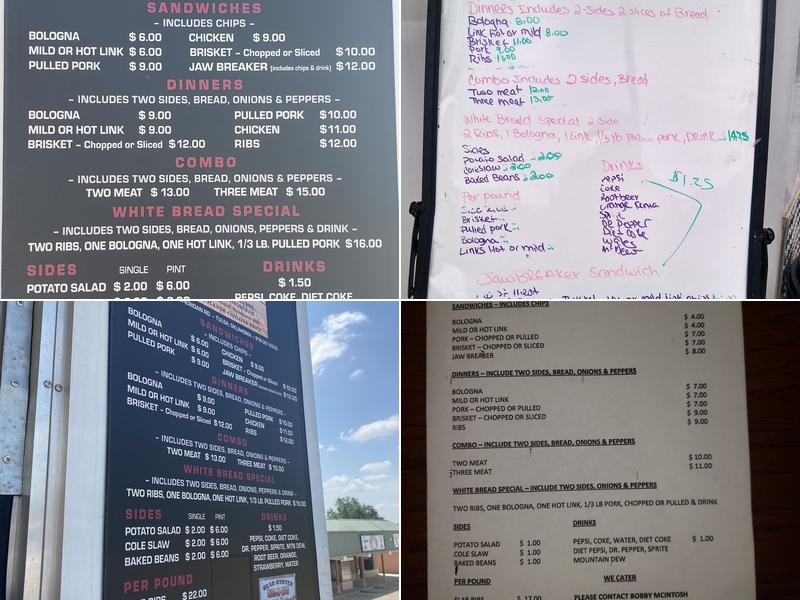 SANDWICHES
– INCLUDES CHIPS –
BOLOGNA $ 6.00 CHICKEN $ 9.00
MILD OR HOT LINK $ 6.00 BRISKET - Chopped or Sliced $ 10.00
PULLED PORK $ 9.00 JAW BREAKER (includes chips & drink) $ 12.00
DINNERS
– INCLUDES TWO SIDES, BREAD, ONIONS & PEPPERS –
BOLOGNA $ 9.00 PULLED PORK $ 10.00
MILD OR HOT LINK $ 9.00 CHICKEN $ 11.00
BRISKET - Chopped or Sliced $ 12.00 RIBS $ 12.00
COMBO
– INCLUDES TWO SIDES, BREAD, ONIONS & PEPPERS –
TWO MEAT $ 13.00 THREE MEAT $ 15.00
WHITE BREAD SPECIAL
– INCLUDES TWO SIDES, BREAD, ONIONS, PEPPERS & DRINK –
TWO RIBS, ONE BOLOGNA, ONE HOT LINK, 1/3 LB. PULLED PORK $ 16.00
SIDES SINGLE PINT DRINKS
$ 1.50
POTATO SALAD $ 2.00 $ 6.00
PEPSI, COKE, DIET COKE
Dinners Includes 2-Sides 2 slices of Bread
Bologna 8.00
Link hot or mild 8.00
Brisket 11.00
Pork 9.00
Ribs
Combo Includes 2 sides, Bread
Two meat 12.00
Three meat 13.00
White Bread Special 2-Side
2 Ribs, 1 Bologna, 1 Link, 1/3 lb Pulled pork, Drink
Sides
Potato Salad 2.00
Coleslaw 2.00
Baked Beans 2.00
Drinks
Pepsi
Coke
Rootbeer
Dr Pepper
Diet Coke
$1.25
Per pound
Brisket
Pulled pork
Bologna
Links Hot or mild
Jaw BREAKER Sandwich
SANDWICHES
– INCLUDES CHIPS –
BOLOGNA $ 6.00 CHICKEN $ 9.00
MILD OR HOT LINK $ 6.00 BRISKET - Chopped or Sliced $ 10.00
PULLED PORK $ 9.00 JAW BREAKER $ 12.00
DINNERS
– INCLUDES TWO SIDES, BREAD, ONIONS & PEPPERS –
BOLOGNA $ 9.00 PULLED PORK $ 10.00
MILD OR HOT LINK $ 9.00 CHICKEN $ 11.00
BRISKET - Chopped or Sliced $ 12.00 RIBS $ 12.00
COMBO
– INCLUDES TWO SIDES, BREAD, ONIONS & PEPPERS –
TWO MEAT $ 13.00 THREE MEAT $ 15.00
WHITE BREAD SPECIAL
– INCLUDES TWO SIDES, BREAD, ONIONS, PEPPERS & DRINK –
TWO RIBS, ONE BOLOGNA, ONE HOT LINK, 1/3 LB. PULLED PORK $ 16.00
SIDES SINGLE PINT DRINKS
$ 1.50
POTATO SALAD $ 2.00 $ 6.00
COLE SLAW $ 2.00 $ 6.00
BAKED BEANS $ 2.00 $ 6.00
PEPSI, COKE, DIET COKE,
DR. PEPPER, SPRITE, MTN DEW,
ROOT BEER, ORANGE,
STRAWBERRY, WATER
PER POUND
RIBS $ 22.00
HEAD HUNTER
SANDWICHES – INCLUDES CHIPS
BOLOGNA $ 4.00
MILD OR HOT LINK $ 4.00
PORK – CHOPPED OR PULLED $ 7.00
BRISKET – CHOPPED OR SLICED $ 7.00
JAW BREAKER $ 8.00
DINNERS – INCLUDE TWO SIDES, BREAD, ONIONS & PEPPERS
BOLOGNA $ 7.00
MILD OR HOT LINK $ 7.00
PORK – CHOPPED OR PULLED $ 7.00
BRISKET – CHOPPED OR SLICED $ 9.00
RIBS $ 9.00
COMBO – INCLUDE TWO SIDES, BREAD, ONIONS & PEPPERS
TWO MEAT $ 10.00
THREE MEAT $ 11.00
WHITE BREAD SPECIAL – INCLUDE TWO SIDES, ONIONS & PEPPERS
TWO RIBS, ONE BOLOGNA, ONE HOT LINK, 1/3 LB PORK, CHOPPED OR PULLED & DRINK
SIDES DRINKS
POTATO SALAD $ 1.00 PEPSI, COKE, WATER, DIET COKE $ 1.00
COLE SLAW $ 1.00 DIET PEPSI, DR. PEPPER, SPRITE
BAKED BEANS $ 1.00 MOUNTAIN DEW
PER POUND WE CATER
SLAB RIBS $ 17.00 PLEASE CONTACT BOBBY MCINTOSH